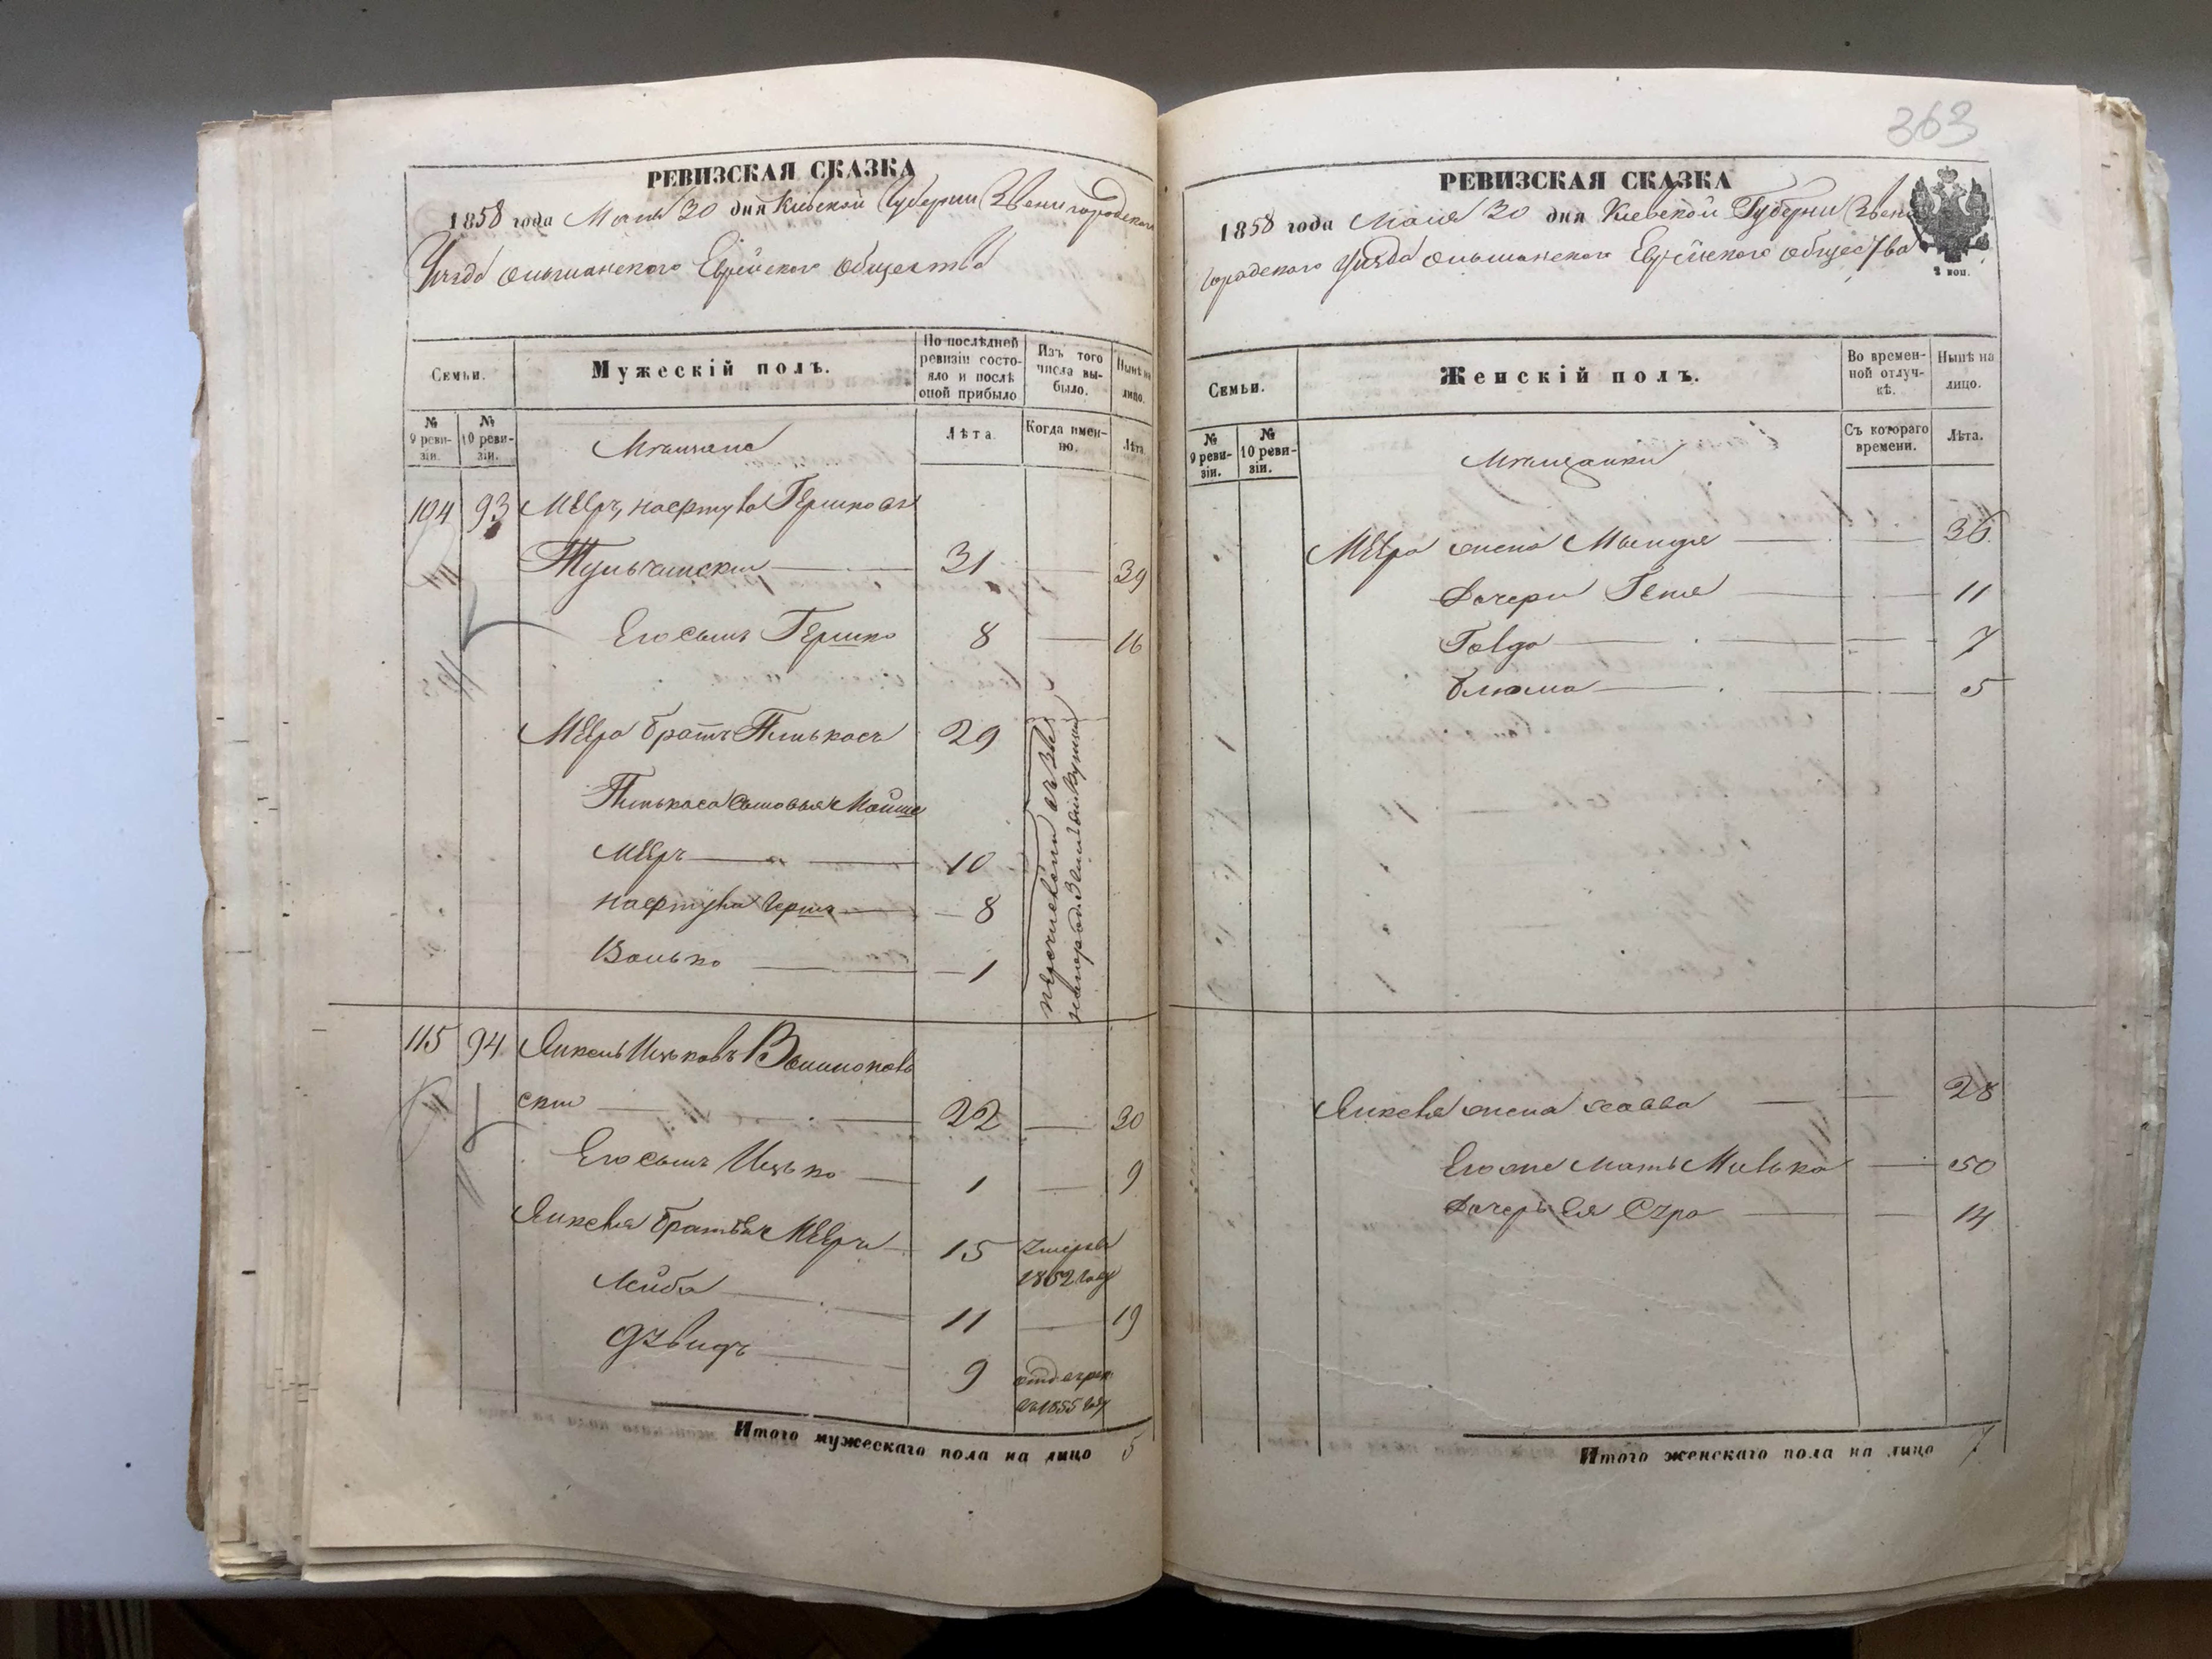 РЕВИЗСКАЯ СКАЗКА
1858 года Маія 30 дня Кіевской Губерніи Звенигородскаго
Уѣзда Ольшанскаго Еврейскаго Общества
Семьи.
Мужескій полъ.
По послѣдней ревизіи состояло и послѣ оной прибыло
Изъ того числа выбыло.
Нынѣ на лицо.
№ 9 ревизіи.
№ 10 ревизіи.
Мѣщане
Лѣта.
Когда именно.
Лѣта.
104 93 Мееръ, Нафтула Гершковъ
Тульчинскій 31 39
Его сынъ Гершко 8 16
Меера братъ Пинькасъ 29
Пинькаса сыновья Мойше
Мееръ 10
Нафтула Герш 8
Волько 1
перечислены въ Зве
нигород
115 94 Янкель Ицьковъ
скій 22 30
Его сынъ Ицько 1 9
Янкеля братья Мееръ 15 умеръ
1852 году
Лейба 11 19
Дувидъ 9 отд в рек
въ 1855 году
Итого мужескаго пола на лицо 5
363
РЕВИЗСКАЯ СКАЗКА
1858 года Маія 30 дня Кіевской Губерніи Звени
городскаго Уѣзда Ольшанскаго Еврейскаго Общества
2 коп.
Семьи.
Женскій полъ.
Во временной отлучкѣ.
Нынѣ на лицо.
№ 9 ревизіи.
№ 10 ревизіи.
Мѣщанки
Съ котораго времени.
Лѣта.
Меера жена Мындля 36
Дочери Геня 11
Голда 7
Блюма 5
Янкеля жена Хавва 28
Его же мать Милька 50
Дочерь ея Сура 14
Итого женскаго пола на лицо 7